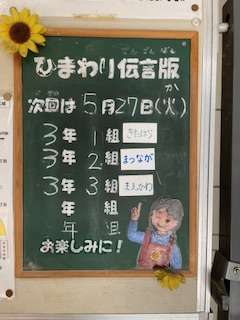 でんごんばん
ひまわり伝言版
じかい
か
次回は5月27日(火)
3年1組 きたはら
3年2組 まつなが
3年3組 まえかわ
年 組
年 組
お楽しみに!